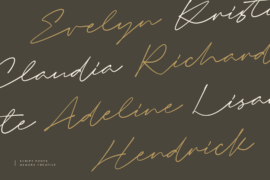 Evelyn Kristi
Claudia Richard
te Adeline Lisa
Hendrick